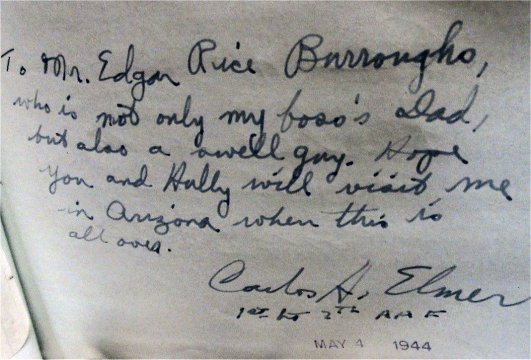 To Mr. Edgar Rice Burroughs,
who is not only my boss's Dad,
but also a swell guy. Hope
you and Hully will visit me
in Arizona when this is
all over.
Carlos H. Elmer
1st Lt 7th AAF
MAY 4 1944